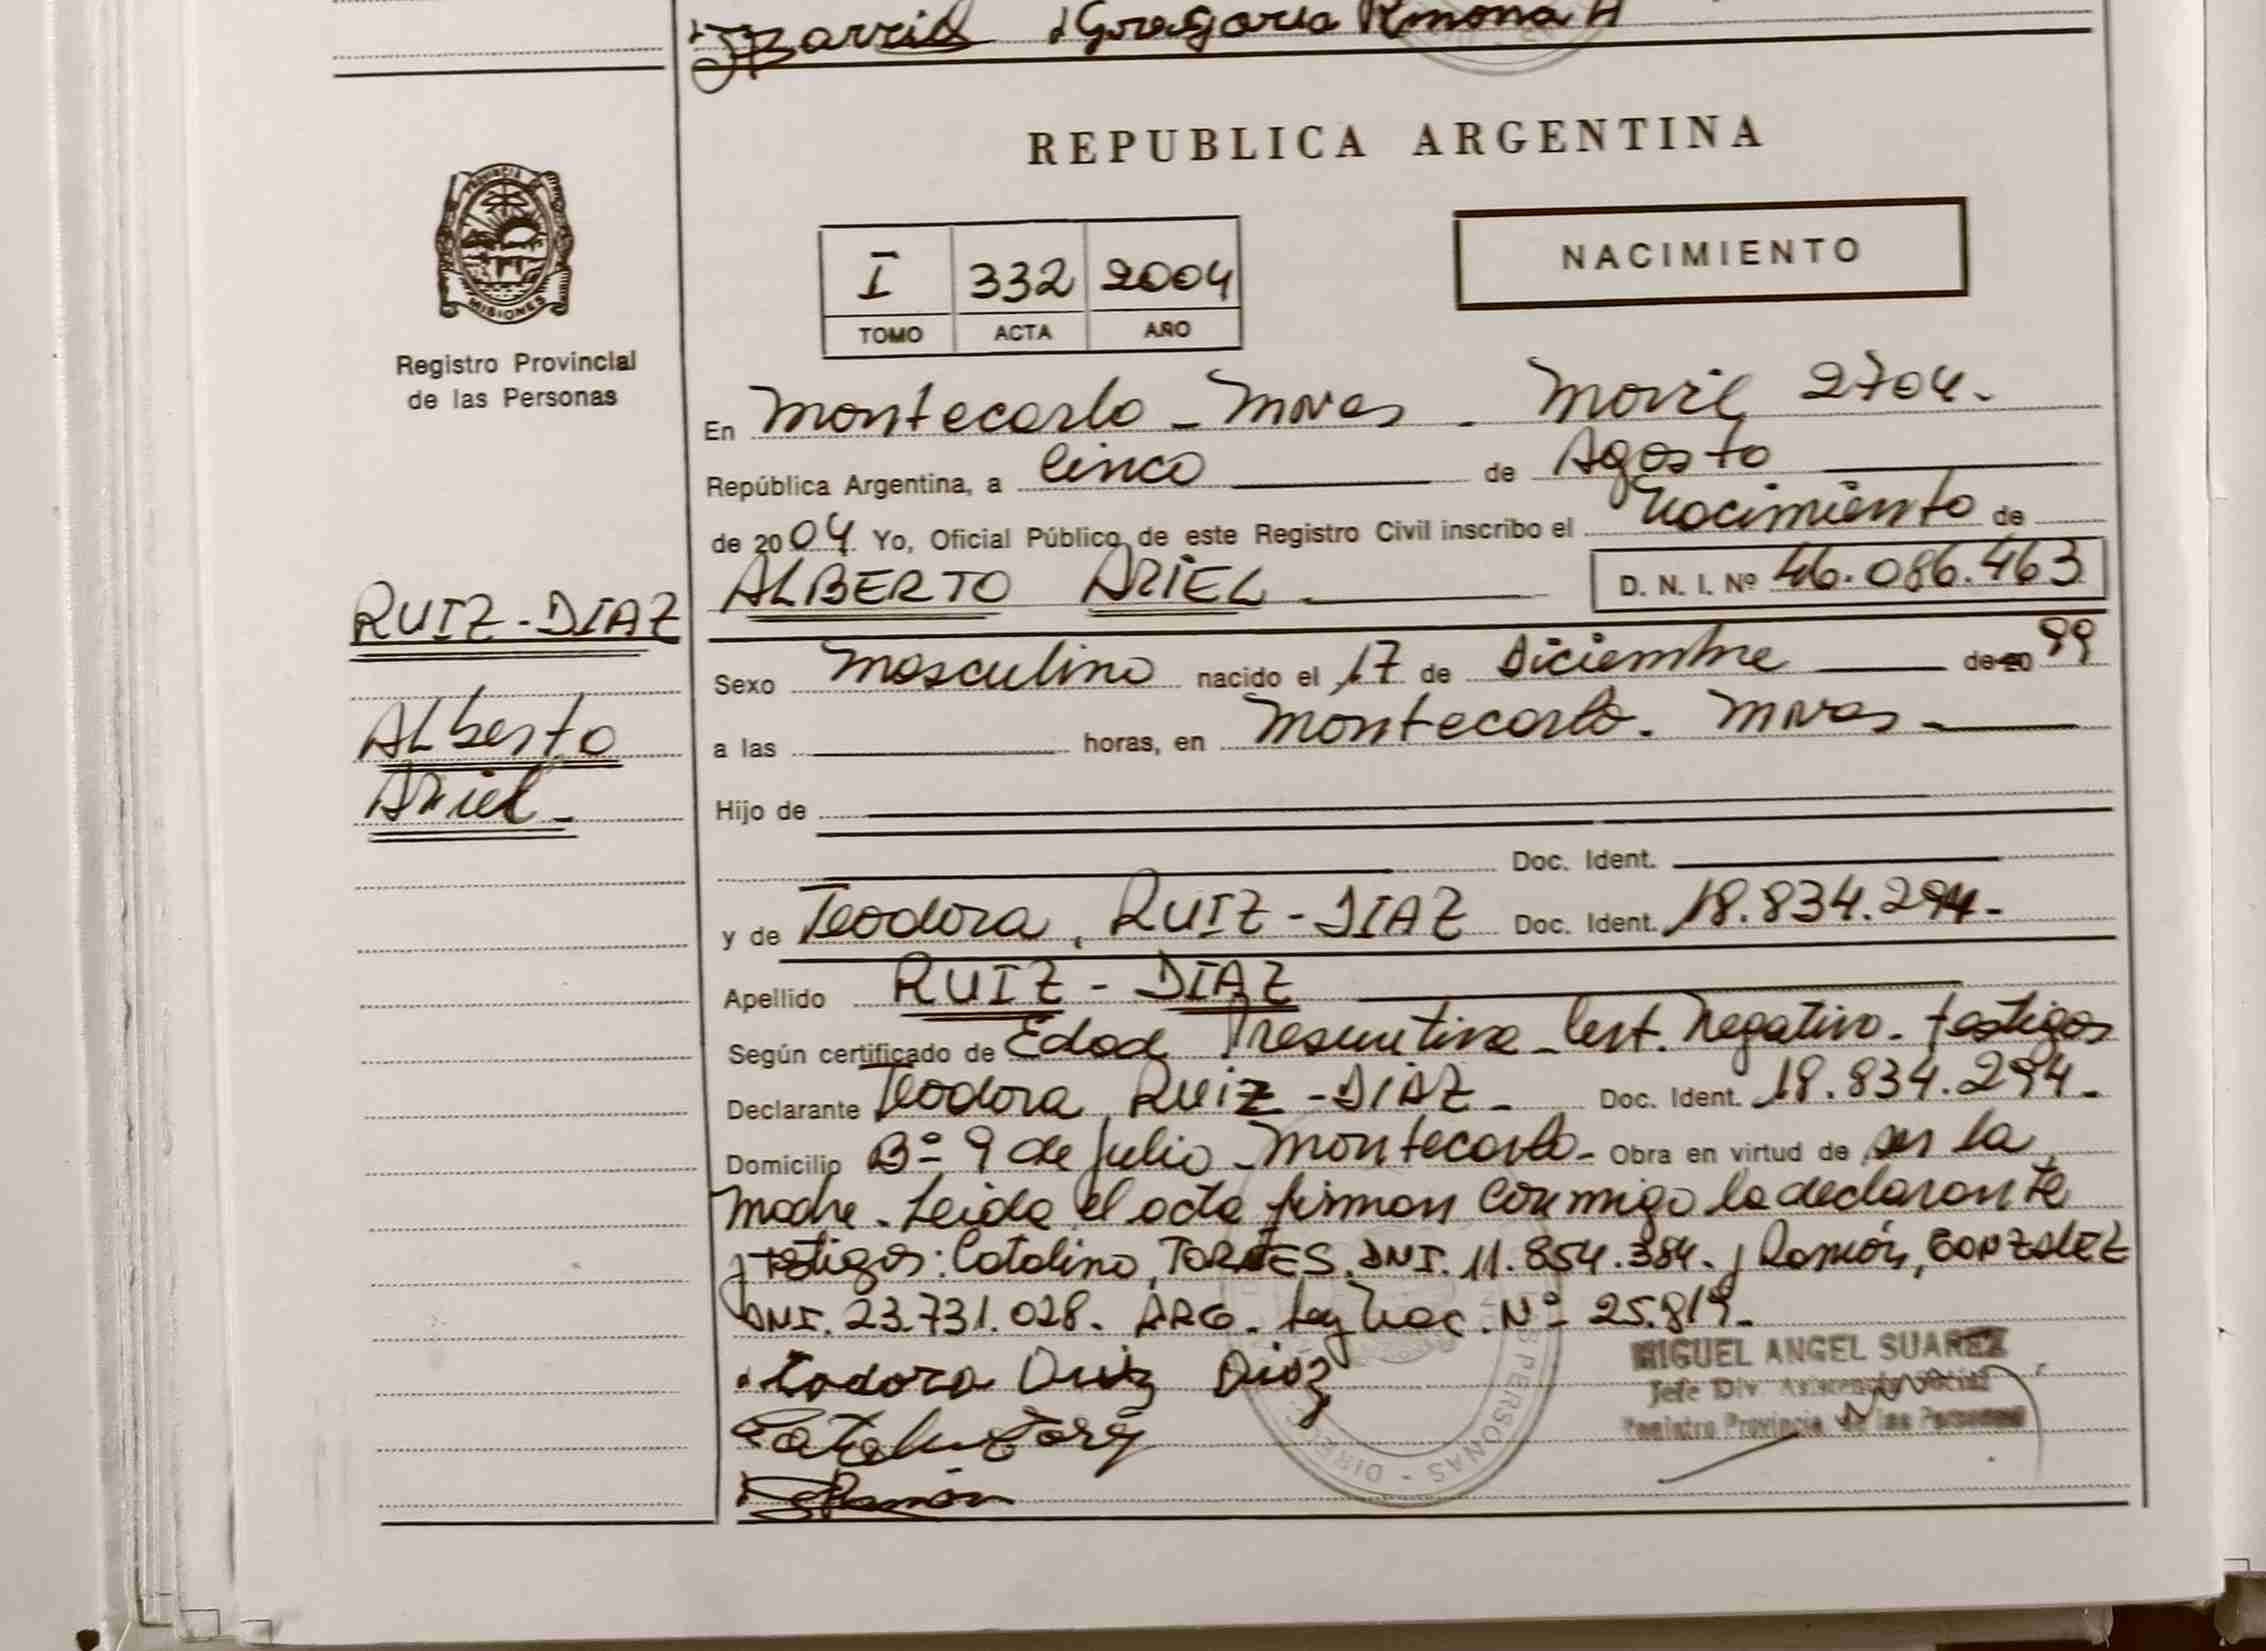 Gregoria Ramona A
REPUBLICA ARGENTINA
PROVINCIA DE MISIONES
NACIMIENTO
I 332 2004
TOMO ACTA AÑO
Registro Provincial
de las Personas
En Montecarlo - Mnes. Movil 2704.
República Argentina, a Cinco de Agosto
de 2004 Yo, Oficial Público de este Registro Civil inscribo el Nacimiento de
ALBERTO ARIEL D. N. I. Nº 46.086.463
RUIZ-DIAZ
Alberto
Ariel
Sexo Masculino nacido el 17 de Diciembre de 20 99
a las horas, en Montecarlo. Mnes
Hijo de
Doc. Ident.
y de Teodora, RUIZ-DIAZ Doc. Ident. 18.834.294.
Apellido RUIZ - DIAZ
Según certificado de Edad Presuntiva - Cert. Negativo. testigos
Declarante Teodora, Ruiz-DIAZ Doc. Ident. 18.834.294.
Domicilio Bº 9 de Julio - Montecarlo - Obra en virtud de ser la
Madre. Leida el acta firman conmigo la declarante
y testigos: Catalino, TORRES. DNI. 11.854.384. y Ramón, GONZALEZ
DNI. 23.731.028. ARG. Ley Nac. Nº 25.819.
Teodora Ruiz Diaz
MIGUEL ANGEL SUAREZ
Jefe Div. Asistencia Social
Registro Provincial de las Personas
Ramón
PERSONAS - DIREC